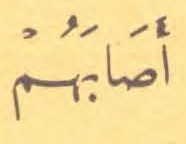 أَصَابَهُمْ